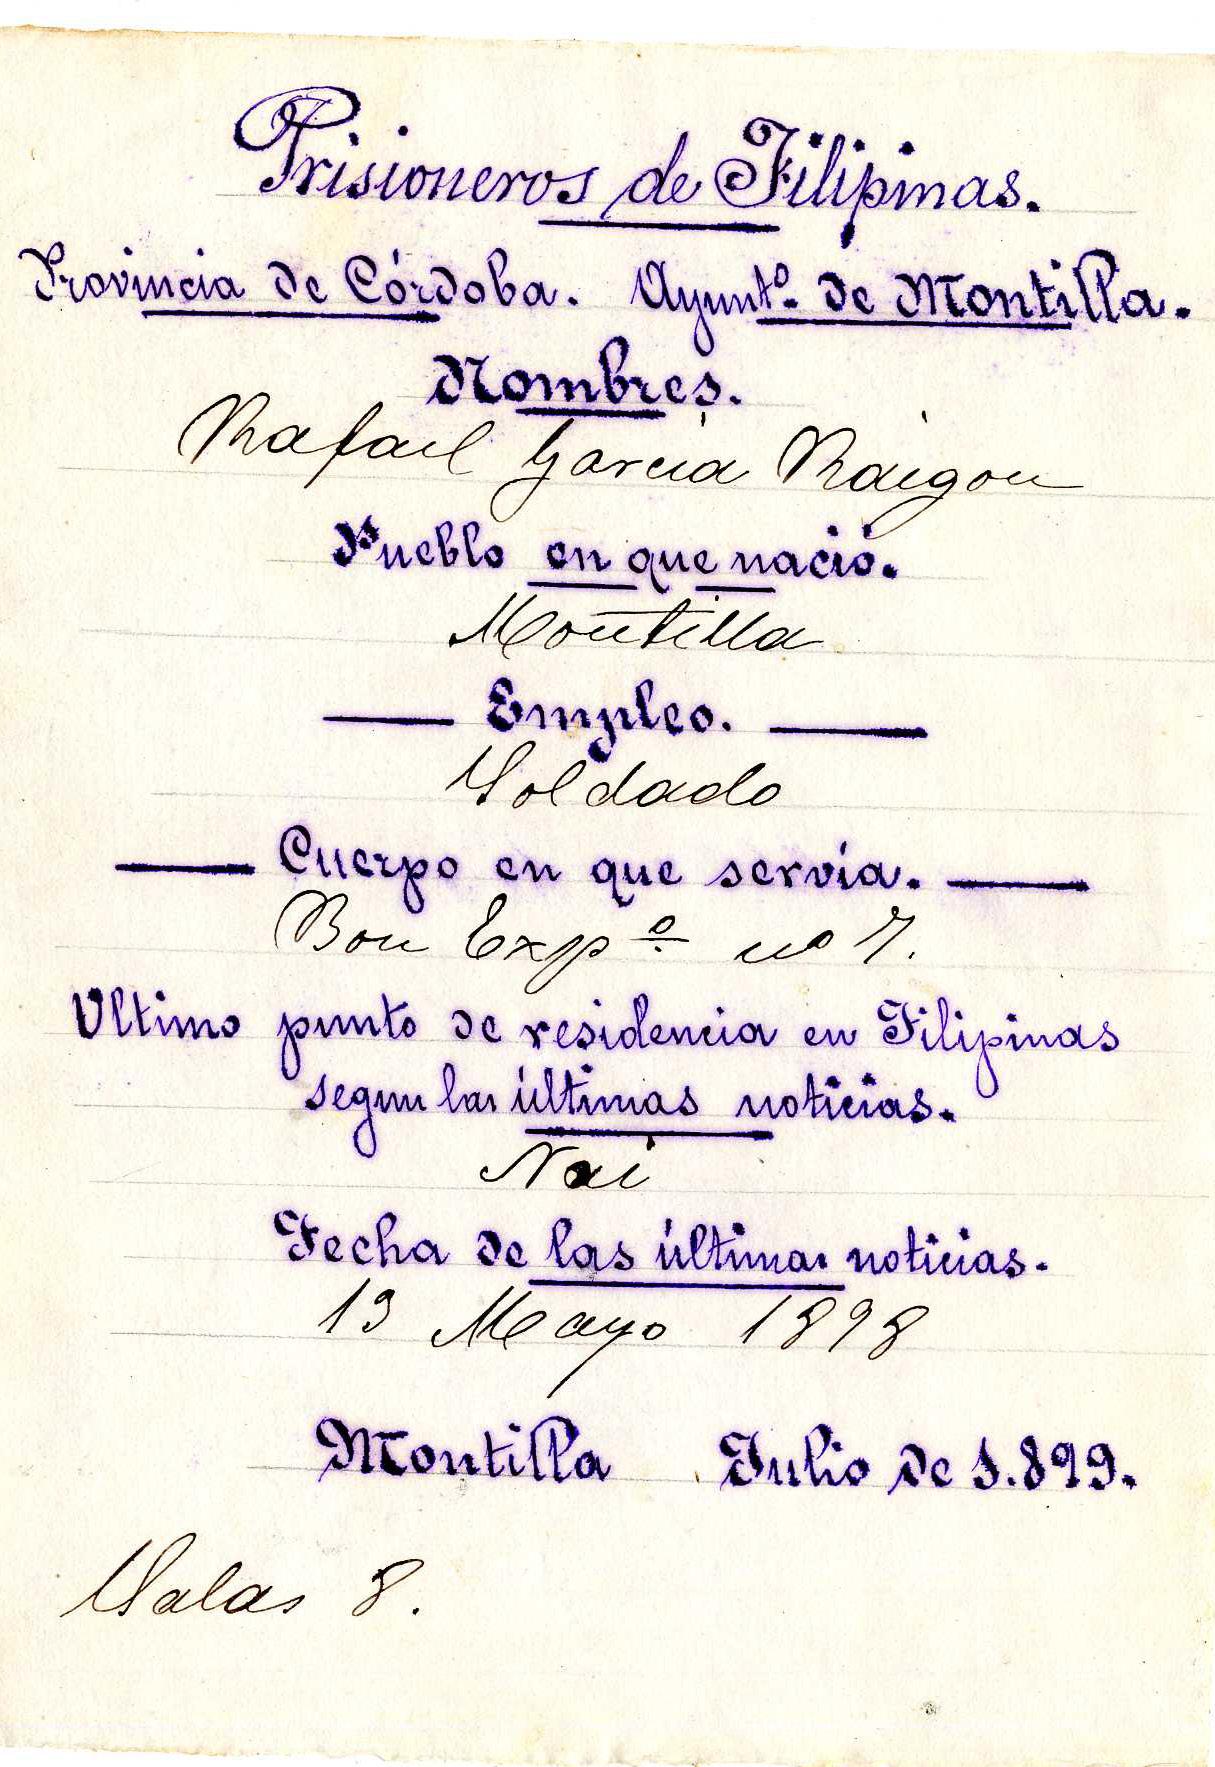 Prisioneros de Filipinas.
Provincia de Córdoba. Ayuntº. de Montilla.
Nombres.
Rafael Garcia Raigon
Pueblo en que nació.
Montilla
Empleo.
Soldado
Cuerpo en que servía.
Bon Expº nº 7.
Ultimo punto de residencia en Filipinas
segun las últimas noticias.
Fecha de las últimas noticias.
13 Mayo 1898
Montilla Julio de 1.899.
Salas 8.